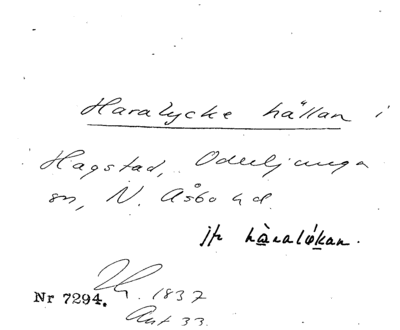 Haralycke hällan i
Hagstad, Oderljunga
sn, N. Åsbo hd.
jfr hàralókan.
1837
Nr 7294.
Ant 33.